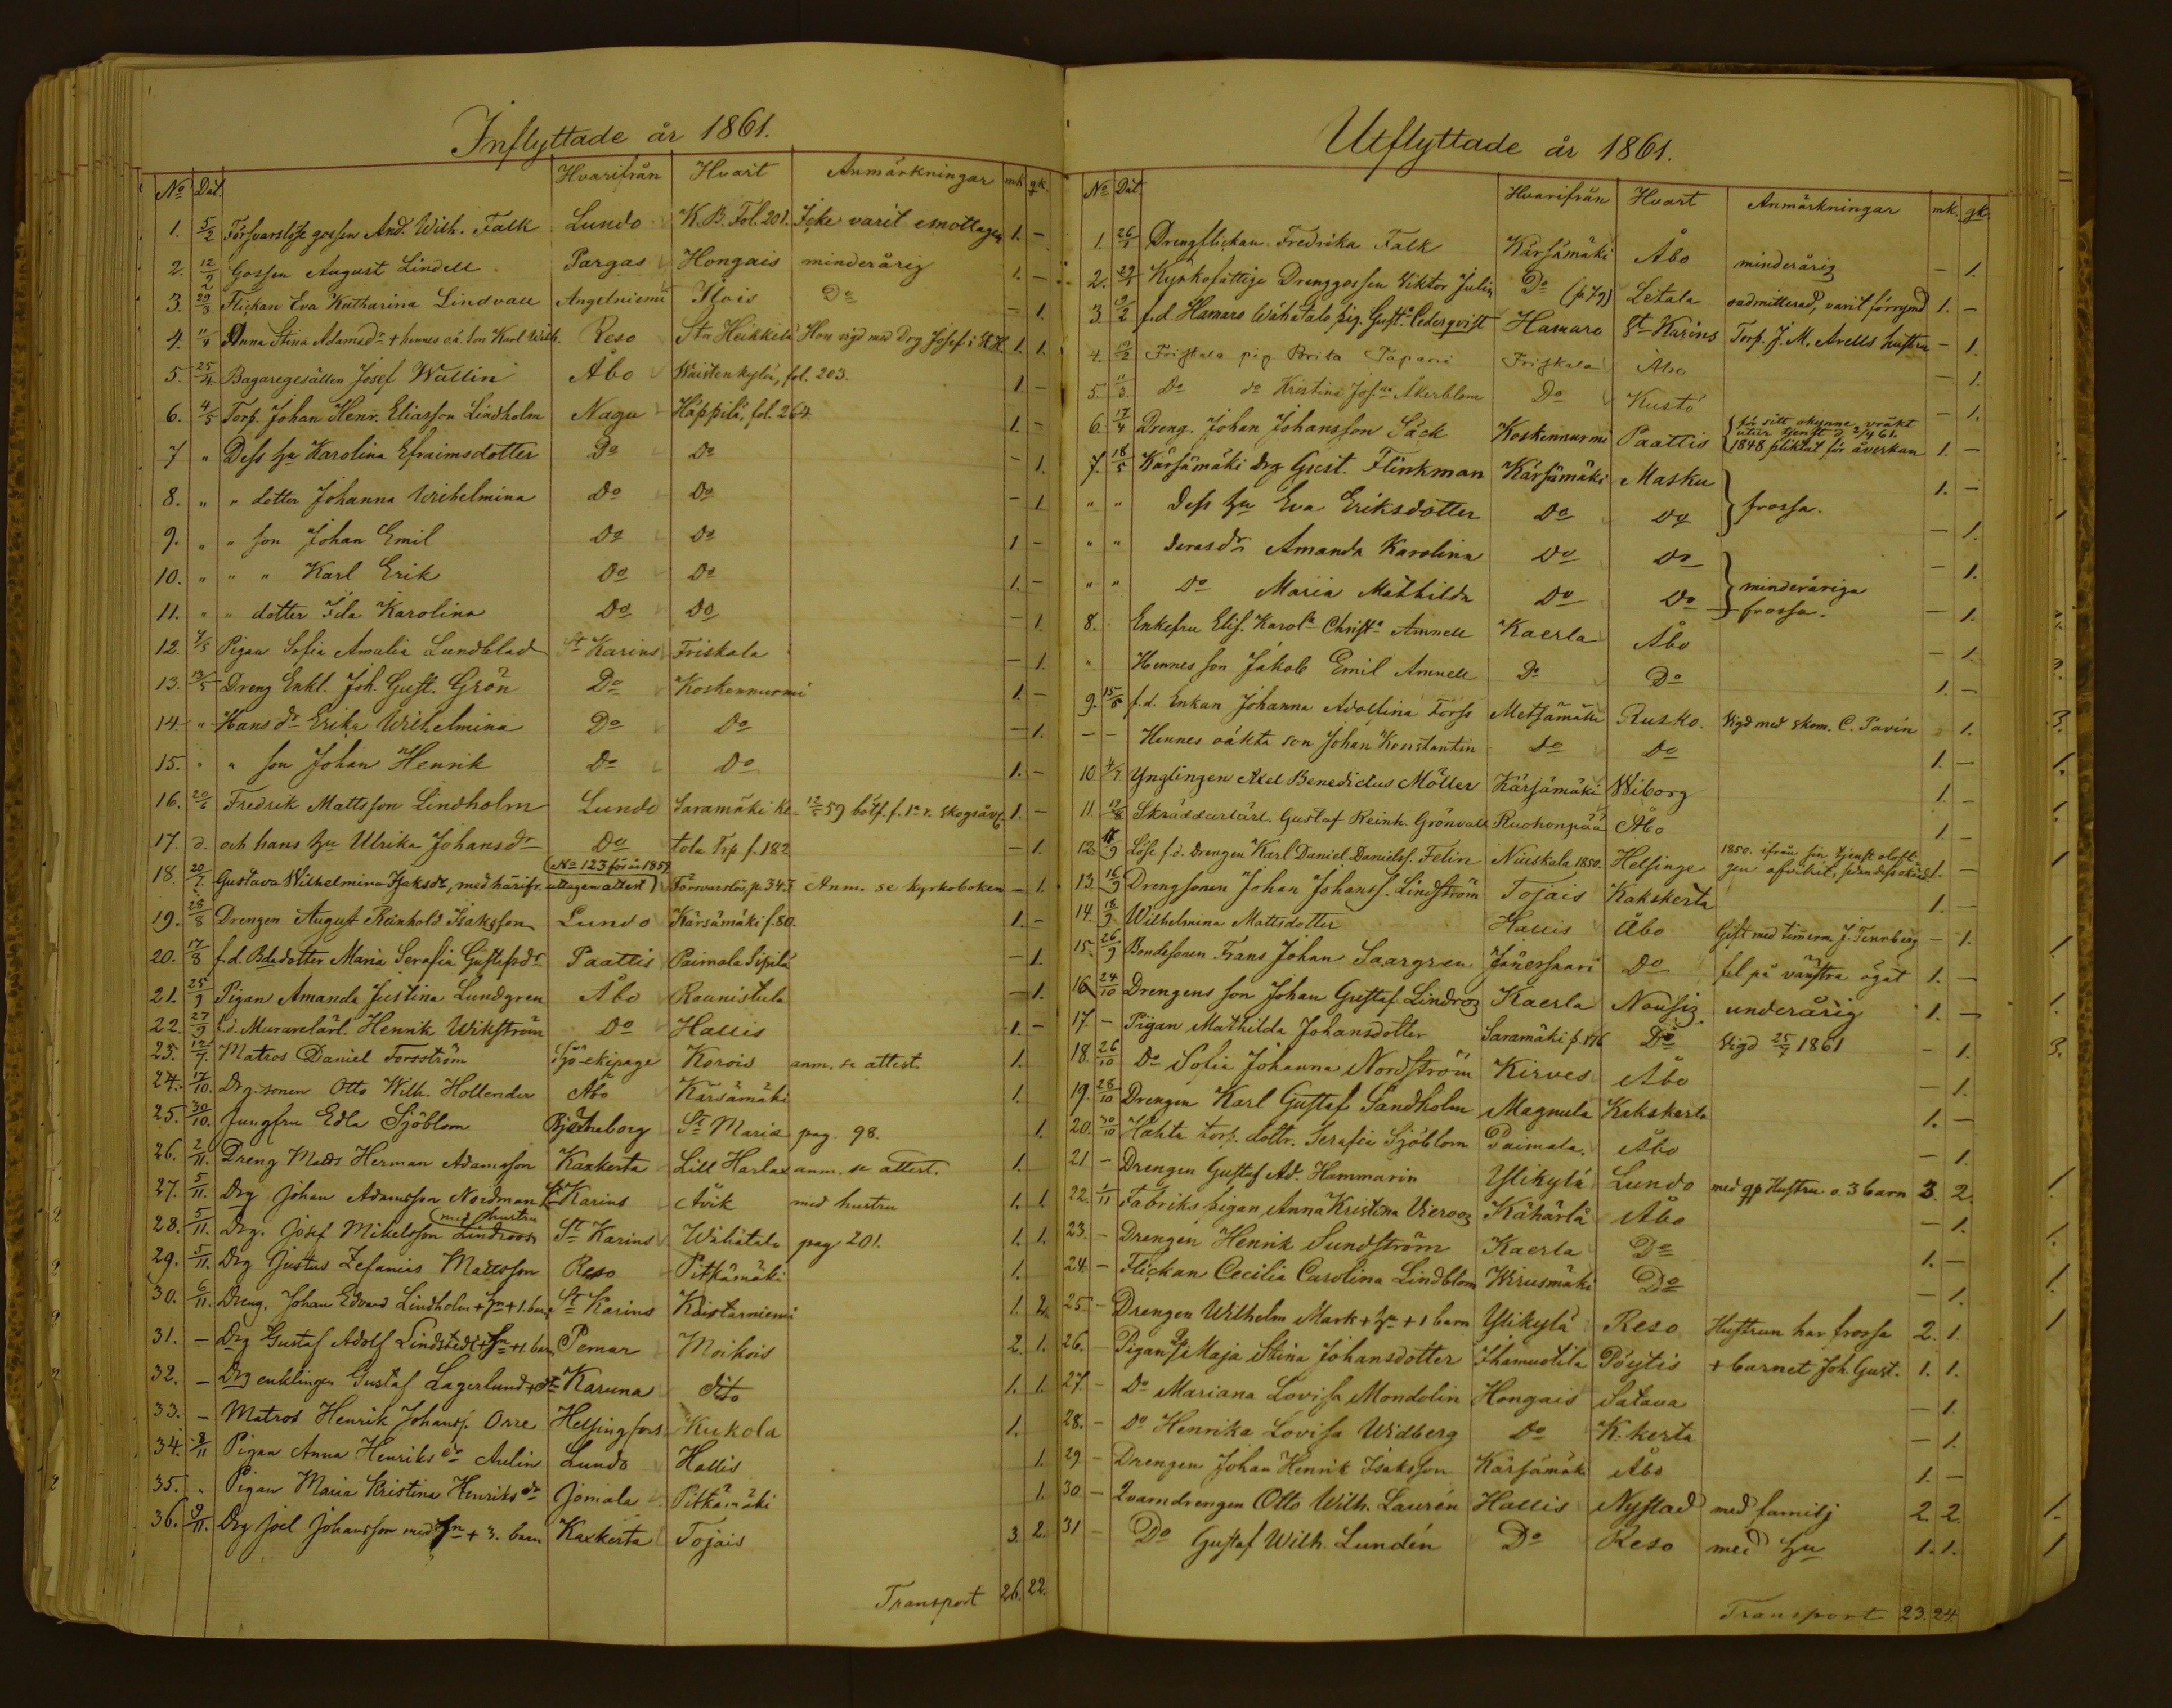 Inflyttade år 1861.
No Dat. Hvarifrån Hvart Anmärkningar mk. qk.
1. 5/2 Försvarslöse gossen And. Wilh. Falk Lundo K.B. Fol. 201. Icke varit emottagen 1. –
2. 12/2 Gossen August Lindell Pargas Hongais minderårig 1. –
3. 29/3 Flickan Eva Katharina Lindvall Angelniemi Ilois Do – 1.
4. 11/4 Anna Stina Adamsdr + hennes o.ä. son Karl Wilh. Reso Sta Heikkilä Hon vigd med Drg Josef i St H. 1. 1.
5. 25/4 Bagaregesällen Josef Wallin Åbo Waistenkylä, fol. 203. 1 –
6. 4/5 Torp. Johan Henr. Eliasson Lindholm Nagu Häppilä, fol. 264. 1. –
7 " Dess hu Karolina Efraimsdotter Do Do – 1.
8. " " dotter Johanna Wilhelmina Do Do – 1
9. " " son Johan Emil Do Do 1 –
10. " " " Karl Erik Do Do 1. –
11. " " dotter Ida Karolina Do Do – 1.
12. 7/5 Pigan Sofia Amalia Lundblad St Karins Friskala – 1.
13. 13/5 Dreng Enkl. Joh. Gust. Grön Do Koskennurmi 1. –
14. " Hans dr Erika Wilhelmina Do Do – 1.
15. " " son Johan Henrik Do Do 1. –
16. 20/6 Fredrik Mattsson Lindholm Lundo Saramäki Ko- 12/5 59 bötf. f. 1a r. skogsåv. 1. –
17. d. och hans hu Ulrika Johansdr Do tola Trp f. 182 – 1.
(No 123 för år 1859
18. 20/7. Gustava Wilhelmina Isaksdr, med härifr. uttagen attest) Förvarslös, p. 347 Anm. se kyrkoboken – 1.
19. 28/8 Drengen August Reinhold Isaksson Lundo Kärsämäki f. 80. 1. –
20. 17/8 f.d. Bdedotter Maria Serafia Gustafsdr Paattis Paimala Sipilä – 1.
21. 25/9 Pigan Amanda Justina Lundgren Åbo Raunistula – 1.
22. 27/9 f.d. Murarelärl. Henrik Wikström Do Hallis 1. –
23. 12/7. Matros Daniel Forsström Sjö-ekipage Korois anm. se attest. 1.
24. 17/10. Drg. sonen Otto Wilh. Hollender Åbo Kärsämäki 1.
25. 30/10. Jungfru Edla Sjöblom Bjerneborg St Maria pag. 98. 1.
26. 2/11. Dreng Matts Herman Adamsson Kaxkerta Lill Harlax anm. se attest. 1.
27. 5/11. Drg Johan Adamsson Nordman St Karins Åvik med hustru 1. 1.
(med hustru
28. 5/11. Drg. Josef Mikelsson Lindroos St Karins Wähätalo pag 201. 1. 1.
29. 5/11. Drg Justus Zefanias Mattsson Reso Pitkämäki 1.
30. 6/11. Dreng. Johan Edvard Lindholm + hu + 1. barn St Karins Kaistarniemi 1. 2.
31. – Drg Gustaf Adolf Lindstedt + hu + 1. barn Pemar Moikois 2. 1.
32. – Drg enklingen Gustaf Lagerlund + dr Karuna dito 1. 1.
33. – Matros Henrik Johanss. Orre Helsingfors Kukola 1.
34. 8/11 Pigan Anna Henriksdr Aulin Lundo Hallis 1.
35. " Pigan Maria Kristina Henriksdr Jomala Pitkämäki 1.
36. 9/11. Drg Joel Johansson med hu + 3. barn Kaxkerta Tojais 3. 2.
Transport 26. 22.
Utflyttade år 1861.
No Dat. Hvarifrån Hvart Anmärkningar mk. qk.
1. 26/1 Drengflickan Fredrika Falk Kärsämäki Åbo minderårig – 1.
2. 29/1 Kyrkofattige Drenggossen Viktor Julin Do (p 79) Letala oadmitterad, varit förrymd 1. –
3. 19/2 f.d. Hamaro Wähätalo pig. Gusta Cederqvist Hamaro St Karins Torp. J. M. Arells hustru – 1.
4. 19/2 Friskala pig. Brita Tapani Friskala Åbo – 1.
5. 11/3. Do do Kristina Jos:na Åkerblom Do Kustö – 1.
6. 17/4 Dreng. Johan Johansson Säck Koskennurmi Paattis för sitt okynne vräkt utur tjenst d 2/4 61. 1848 pliktat för åverkan 1. –
7. 18/5 Kärsämäki drg Gust. Flinkman Kärsämäki Masku 1. –
" " Dess hu Eva Eriksdotter Do Do frossa. – 1.
" " deras dr Amanda Karolina Do Do – 1.
" " Do Maria Mathilda Do Do minderåriga frossa. – 1.
8. Enkefru Elis. Karola Christa Amnell Kaerla Åbo – 1.
" Hennes son Jakob Emil Amnell Do Do 1. –
9. 15/6 f.d. Enkan Johanna Adolfina Forss Metsämäki Rusko. Vigd med skom. C. Pavén 1.
– – Hennes oäkta son Johan Konstantin Do Do 1. –
10 4/7 Ynglingen Axel Benedictus Möller Kärsämäki Wiborg 1. –
11. 19/8 Skräddarlärl. Gustaf Reinh. Grönvall Ruohonpää Åbo 1 –
12. 11/9 Löse f.d. drengen Karl Daniel Danielss. Felin Niuskala 1850. Helsinge 1850. ifrån sin tjenst oloft- gen afvikit, 1. –
13. 16/9 Drengsonen Johan Johanss. Lindström Tojais Kakskerta 1. –
14. 18/9 Wilhelmina Mattsdotter Hallis Åbo Gift med timerm J. Tennberg – 1.
15. 26/9 Bondesonen Frans Johan Saargren Jänessaari Do fel på vänstra ögat 1. –
16 24/10 Drengens son Johan Gustaf Lindroos Kaerla Nousis underårig 1. –
17. – Pigan Mathilda Johansdotter Saramäki p. 176 Do Vigd 25/7 1861 – 1.
18. 26/10 Do Sofia Johanna Nordström Kirves Åbo – 1.
19. 28/10 Drengen Karl Gustaf Sandholm Magnula Kakskerta 1. –
20. 30/10 Hahta torp. dottr. Serafia Sjöblom Paimala. Åbo – 1.
21 – Drengen Gustaf Ad. Hammarin Ylikylä Lundo med gp Hustru o. 3 barn 3. 2.
22. 1/11 Fabriks pigan Anna Kristina Vieroos Kähärlä Åbo – 1.
23. – Drengen Henrik Sundström Kaerla Do 1. –
24 – Flickan Cecilia Carolina Lindblom Wirusmäki Do – 1.
25 – Drengen Wilhelm Mark + hu + 1 barn Ylikylä Reso Hustrun har frossa 2. 1.
26. – Pigan Maja Stina Johansdotter Ihamuotila Pöytis + barnet Joh. Gust. 1. 1.
27 – Do Mariana Lovisa Mondolin Hongais Satava – 1.
28. – Do Henrika Lovisa Widberg Do K. kerta – 1.
29 – Drengen Johan Henrik Isaksson Kärsämäki Åbo 1. –
30 – Qvarndrengen Otto Wilh. Laurén Hallis Nystad med familj 2. 2.
31 – Do Gustaf Wilh. Lundén Do Reso med hu 1. 1.
Transport 23. 24.